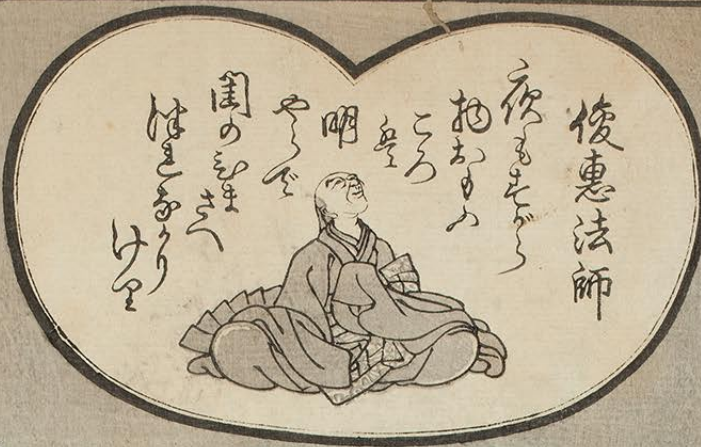 俊惠法師
夜もすがら
物おもふ
ころ
は
明
やらで
閨のひま
さへ
つれなかり
けり